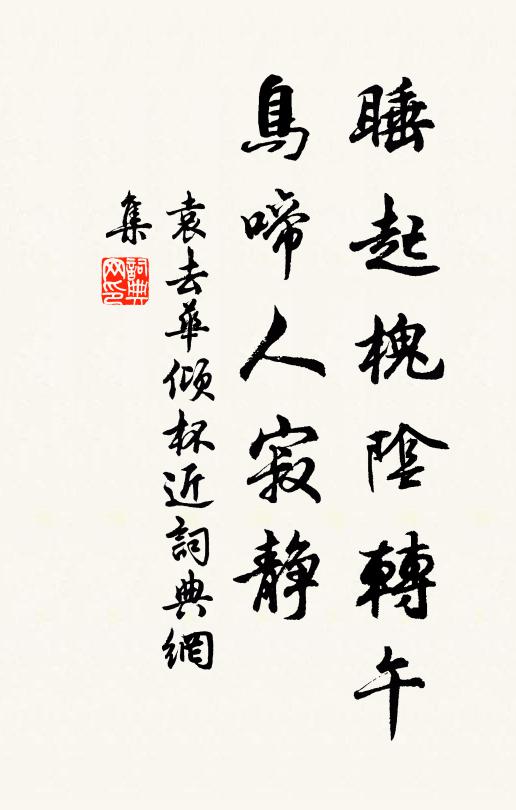 睡起槐陰轉午
鳥啼人寂靜
袁去華傾杯近詞典網
集
詞典
网印